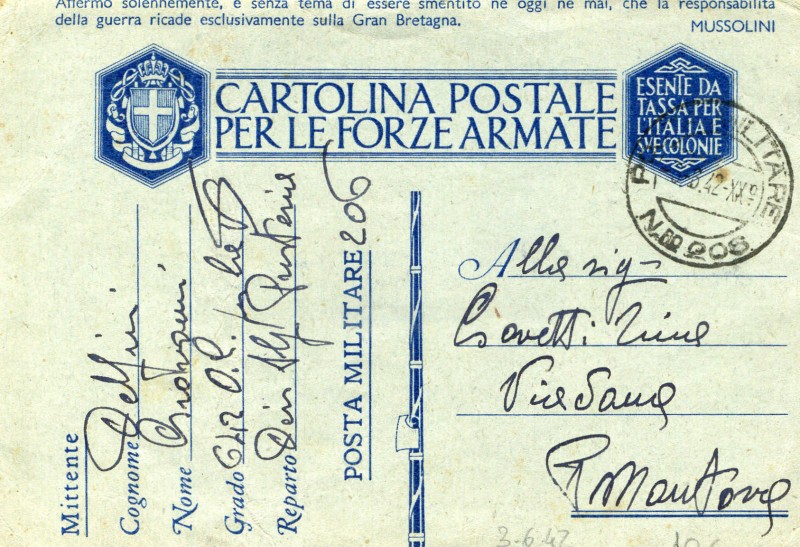 Affermo solennemente, e senza tema di essere smentito nè oggi nè mai, che la responsabilità
della guerra ricade esclusivamente sulla Gran Bretagna.
MUSSOLINI
CARTOLINA POSTALE
PER LE FORZE ARMATE
ESENTE DA
TASSA PER
L'ITALIA E
SVE COLONIE
MILITARE
42-XX
N. 208
Mittente
Cognome Delfini
Nome
Grado 642
Reparto
POSTA MILITARE 206
Alla sig
Viadana
Mantova
3-6-42